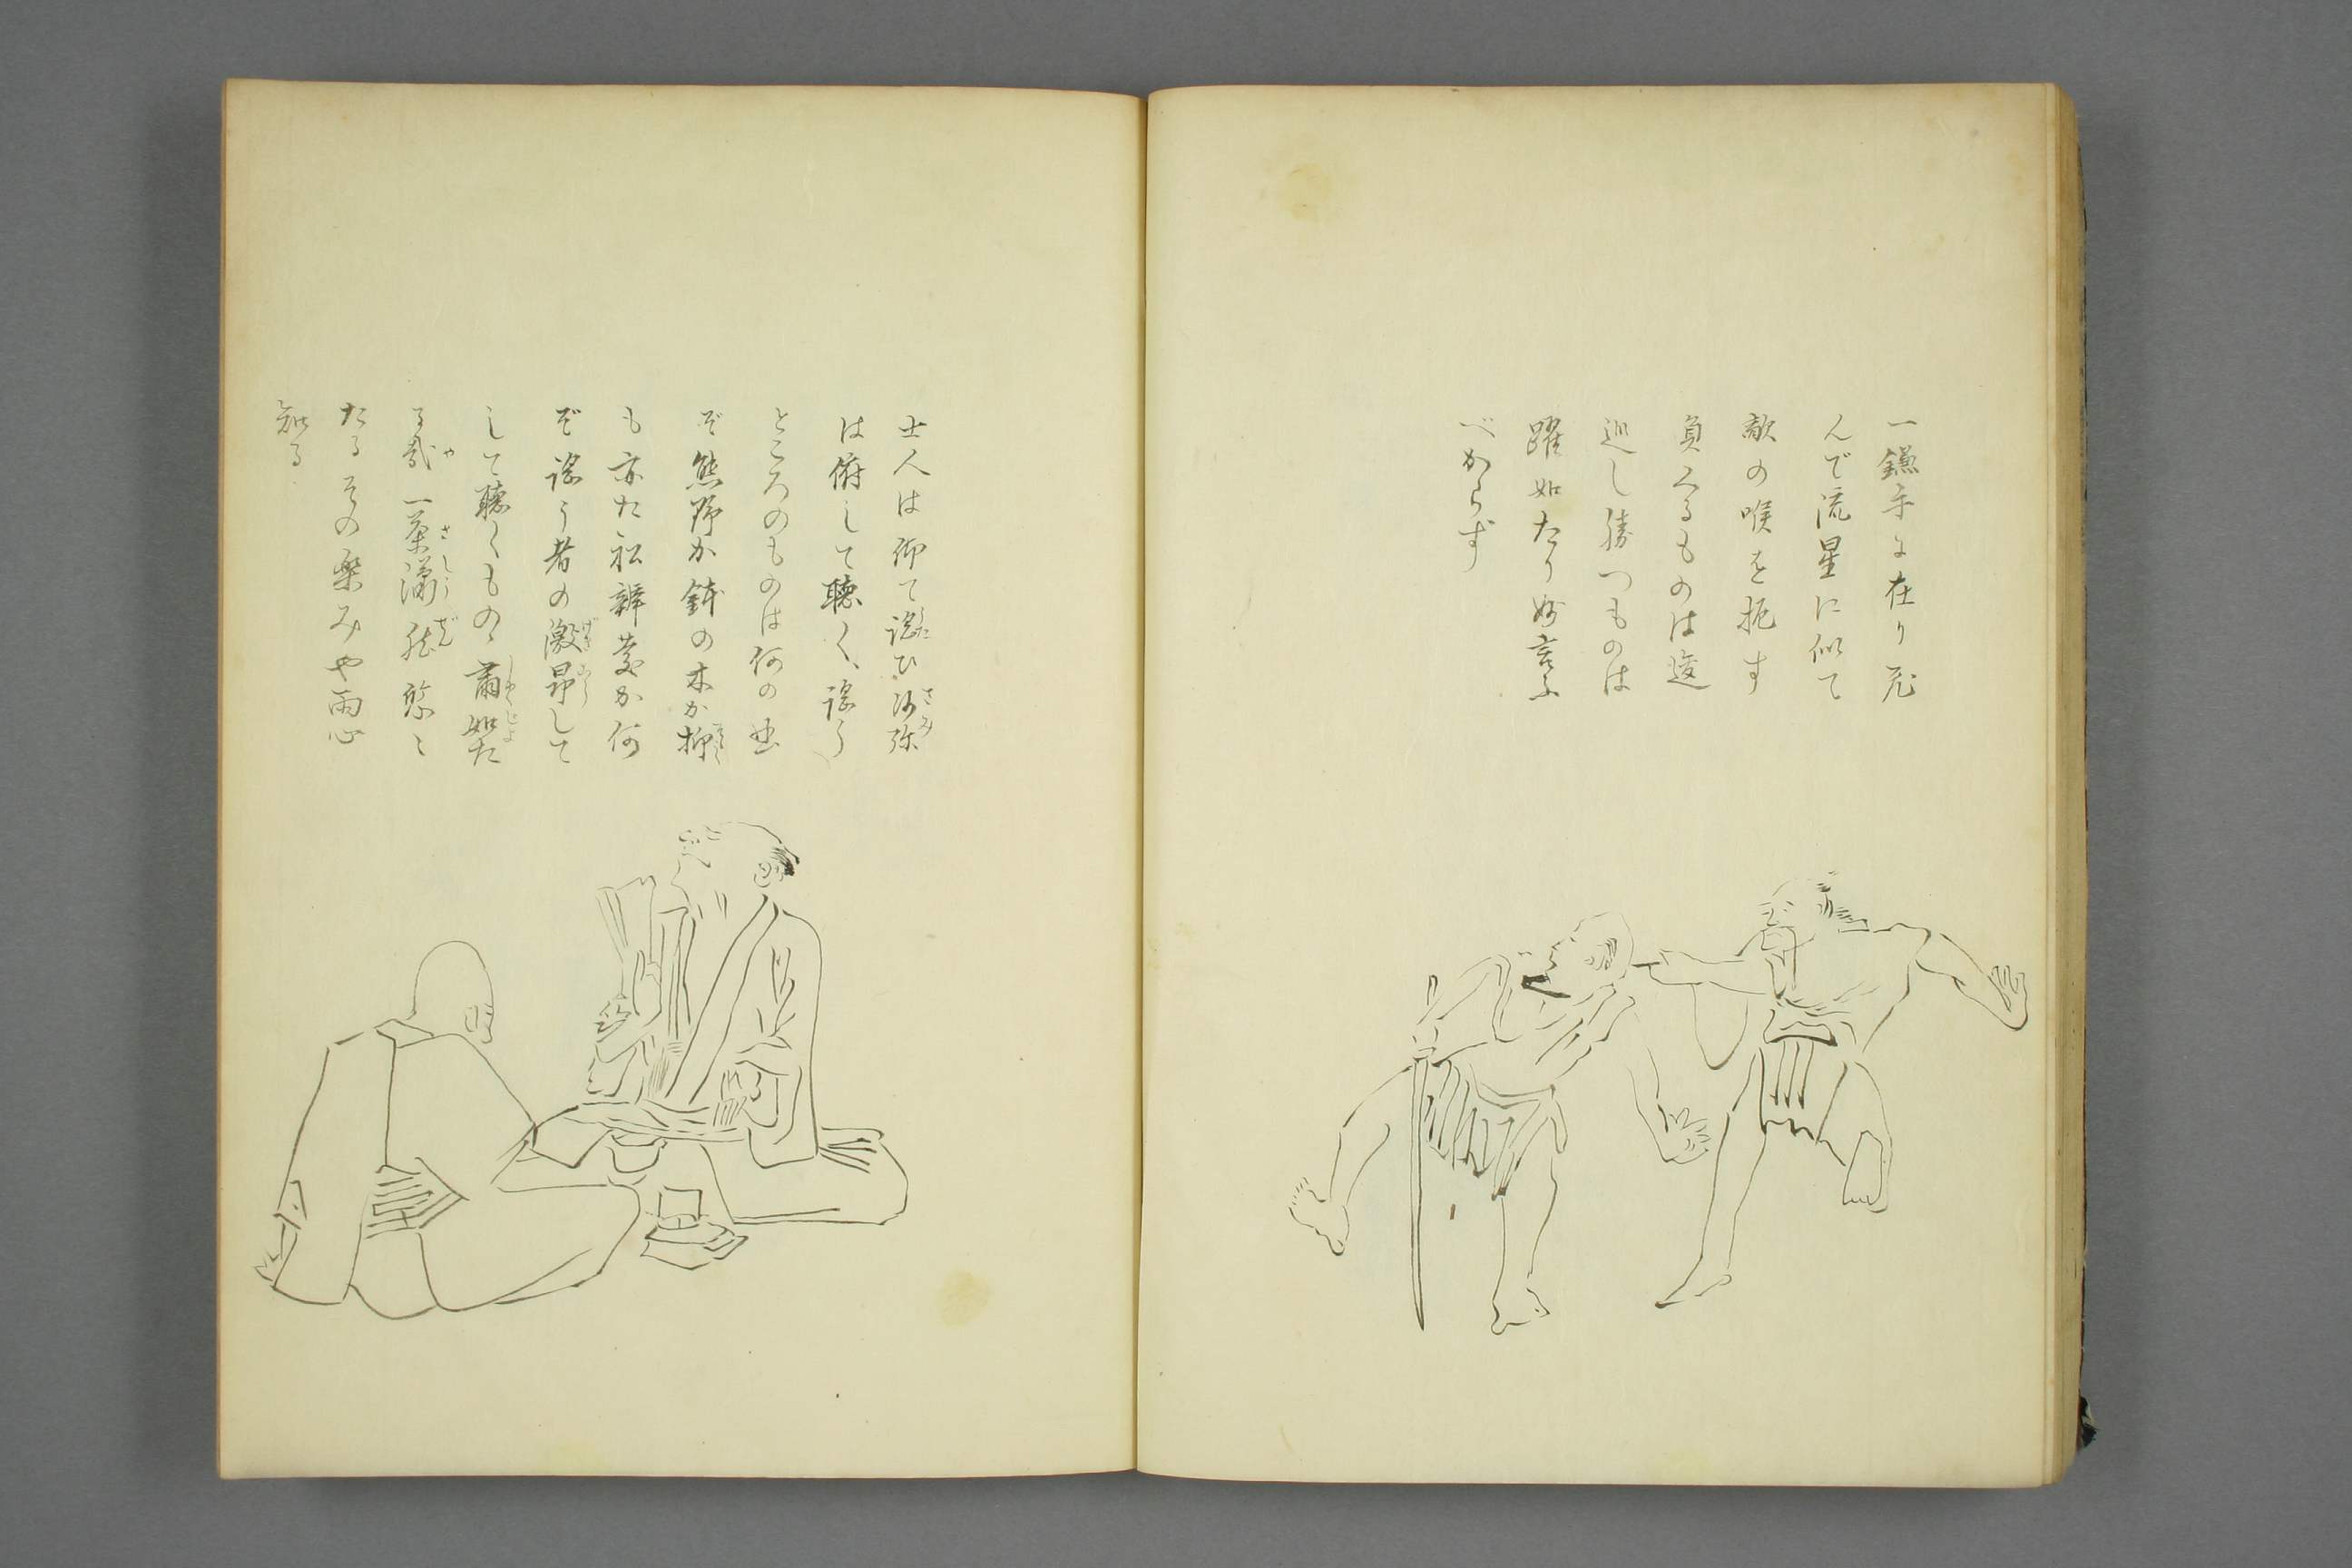 一鎌手に在り飛
んで流星に似て
敵の喉を扼す
負くるものは逡
巡し勝つものは
躍如たり妙言ふ
べからず
士人は仰て謡ひ沙弥
は俯して聴く、謡う
ところのものは何の曲
ぞ熊野か鉢の木か抑
も亦た松辨慶か何
ぞ謡う者の激昂して
して聴くものゝ肅如た
る哉一茶瀟然悠々
たるその楽みや両心
知る